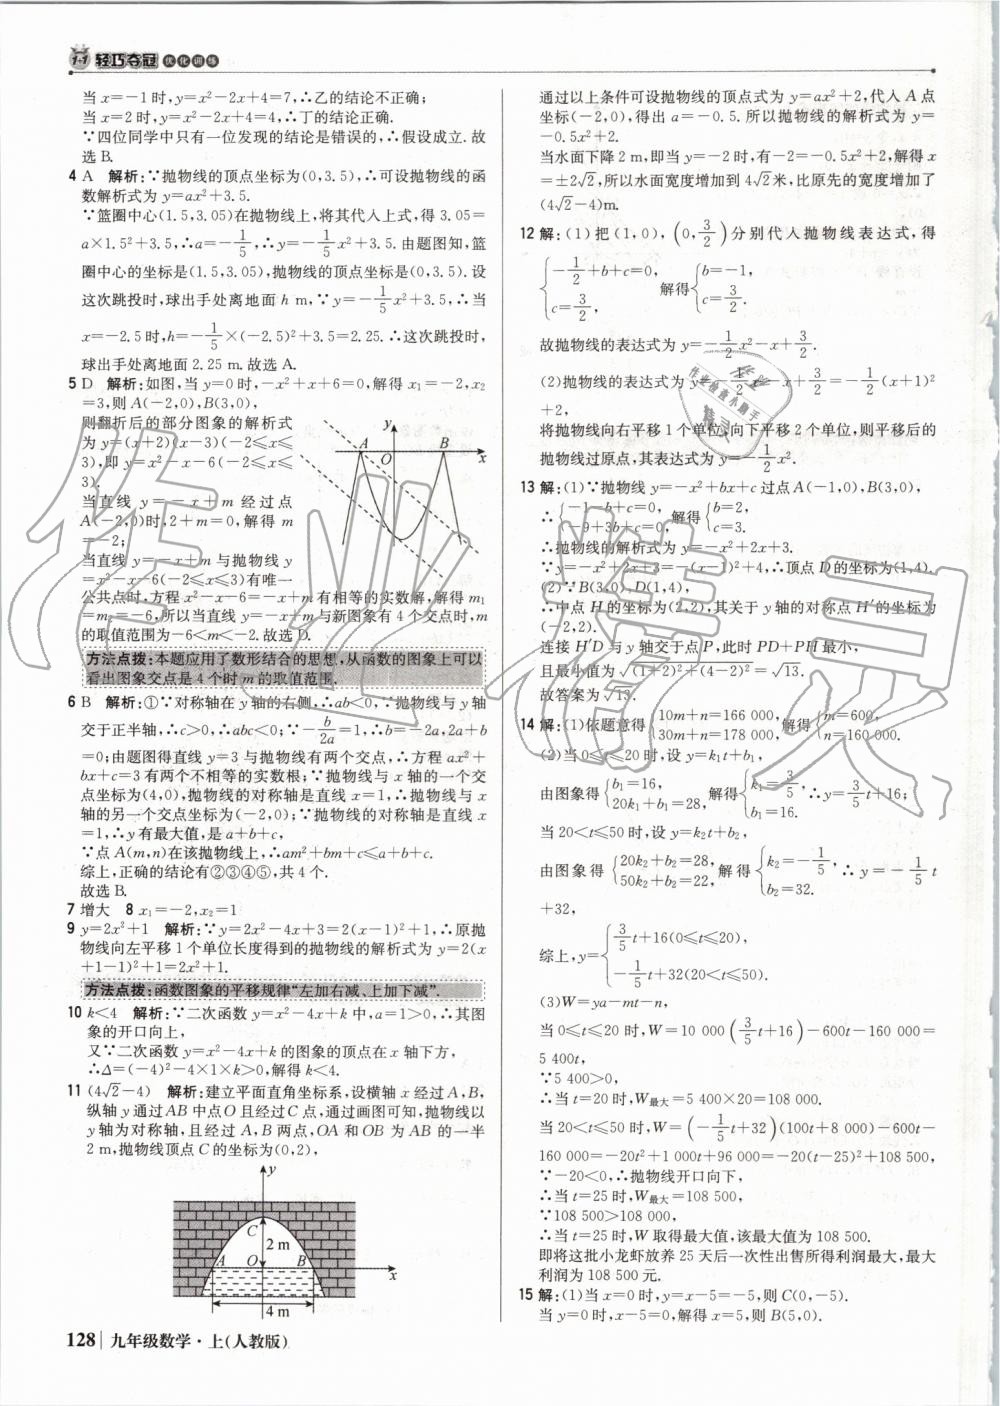 1+1 轻巧夺冠 优化训练
当x=-1时,y=x²-2x+4=7,∴乙的结论不正确;
当x=2时,y=x²-2x+4=4,∴丁的结论正确.
∵四位同学中只有一位发现的结论是错误的,∴假设成立.故
选B.
4 A 解析:∵抛物线的顶点坐标为(0,3.5),∴可设抛物线的函
数解析式为y=ax²+3.5.
∵篮圈中心(1.5,3.05)在抛物线上,将其代入上式,得3.05=
a×1.5²+3.5,∴a=-1/5,∴y=-1/5x²+3.5.由题图知,篮
圈中心的坐标是(1.5,3.05),抛物线的顶点坐标是(0,3.5).设
这次跳投时,球出手处离地面h m,∵y=-1/5x²+3.5,∴当
x=-2.5时,h=-1/5×(-2.5)²+3.5=2.25.∴这次跳投时,
球出手处离地面2.25 m.故选A.
5 D 解析:如图,当y=0时,-x²+x+6=0,解得x₁=-2,x₂
=3,则A(-2,0),B(3,0),
则翻折后的部分图象的解析式
为y=(x+2)(x-3)(-2≤x≤
3),即y=x²-x-6(-2≤x≤
3).
当直线y=-x+m经过点
A(-2,0)时,2+m=0,解得m
=-2;
当直线y=-x+m与抛物线y
=x²-x-6(-2≤x≤3)有唯一
公共点时,方程x²-x-6=-x+m有相等的实数解,解得m₁
=m₂=-6,所以当直线y=-x+m与新图象有4个交点时,m
的取值范围为-6<m<-2.故选D.
y
A
B
O
x
方法点拨:本题应用了数形结合的思想,从函数的图象上可以
看出图象交点是4个时m的取值范围.
6 B 解析:①∵对称轴在y轴的右侧,∴ab<0,∵抛物线与y轴
交于正半轴,∴c>0,∴abc<0;∵-b/2a=1,∴b=-2a,2a+b
=0;由题图得直线y=3与抛物线有两个交点,∴方程ax²+
bx+c=3有两个不相等的实数根;∵抛物线与x轴的一个交
点坐标为(4,0),抛物线的对称轴是直线x=1,∴抛物线与x
轴的另一个交点坐标为(-2,0);∵抛物线的对称轴是直线x
=1,∴y有最大值,是a+b+c,
∵点A(m,n)在该抛物线上,∴am²+bm+c≤a+b+c.
综上,正确的结论有②③④⑤,共4个.
故选B.
7 增大 8 x₁=-2,x₂=1
9 y=2x²+1 解析:∵y=2x²-4x+3=2(x-1)²+1,∴原抛
物线向左平移1个单位长度得到的抛物线的解析式为y=2(x
+1-1)²+1=2x²+1.
方法点拨:函数图象的平移规律“左加右减、上加下减”.
10 k<4 解析:∵二次函数y=x²-4x+k中,a=1>0,∴其图
象的开口向上,
又∵二次函数y=x²-4x+k的图象的顶点在x轴下方,
∴Δ=(-4)²-4×1×k>0,解得k<4.
11 (4√2-4) 解析:建立平面直角坐标系,设横轴x经过A,B,
纵轴y通过AB中点O且经过C点,通过画图可知,抛物线以
y轴为对称轴,且经过A,B两点,OA和OB为AB的一半
2 m,抛物线顶点C的坐标为(0,2),
y
C
2 m
A O B
x
4 m
128 九年级数学·上(人教版)
通过以上条件可设抛物线的顶点式为y=ax²+2,代入A点
坐标(-2,0),得出a=-0.5.所以抛物线的解析式为y=
-0.5x²+2.
当水面下降2 m,即当y=-2时,有-2=-0.5x²+2,解得x
=±2√2,所以水面宽度增加到4√2米,比原先的宽度增加了
(4√2-4)m.
12 解:(1)把(1,0),(0,3/2)分别代入抛物线表达式,得
{-1/2+b+c=0, c=3/2, 解得{b=-1, c=3/2.
故抛物线的表达式为y=-1/2x²-x+3/2.
(2)抛物线的表达式为y=-1/2x²-x+3/2=-1/2(x+1)²
+2,
将抛物线向右平移1个单位,向下平移2个单位,则平移后的
抛物线过原点,其表达式为y=-1/2x².
13 解:(1)∵抛物线y=-x²+bx+c过点A(-1,0),B(3,0),
∴{-1-b+c=0, -9+3b+c=0, 解得{b=2, c=3.
∴抛物线的解析式为y=-x²+2x+3.
∵y=-x²+2x+3=-(x-1)²+4,∴顶点D的坐标为(1,4).
(2)∵B(3,0),D(1,4),
∴中点H的坐标为(2,2),其关于y轴的对称点H′的坐标为
(-2,2).
连接H′D与y轴交于点P,此时PD+PH最小,
且最小值为√(1+2)²+(4-2)²=√13.
故答案为√13.
14 解:(1)依题意得{10m+n=166 000, 30m+n=178 000, 解得{m=600, n=160 000.
(2)当0≤t≤20时,设y=k₁t+b₁,
由图象得{b₁=16, 20k₁+b₁=28, 解得{k₁=3/5, b₁=16. ∴y=3/5t+16;
当20<t≤50时,设y=k₂t+b₂,
由图象得{20k₂+b₂=28, 50k₂+b₂=22, 解得{k₂=-1/5, b₂=32. ∴y=-1/5t
+32,
综上,y={3/5t+16(0≤t≤20), -1/5t+32(20<t≤50).
(3)W=ya-mt-n,
当0≤t≤20时,W=10 000(3/5t+16)-600t-160 000=
5 400t,
∵5 400>0,
∴当t=20时,W最大=5 400×20=108 000.
当20<t≤50时,W=(-1/5t+32)(100t+8 000)-600t-
160 000=-20t²+1 000t+96 000=-20(t-25)²+108 500,
∵-20<0,∴抛物线开口向下,
∴当t=25时,W最大=108 500,
∵108 500>108 000,
∴当t=25时,W取得最大值,该最大值为108 500.
即将这批小龙虾放养25天后一次性出售所得利润最大,最大
利润为108 500元.
15 解:(1)当x=0时,y=x-5=-5,则C(0,-5).
当y=0时,x-5=0,解得x=5,则B(5,0).
作业精灵